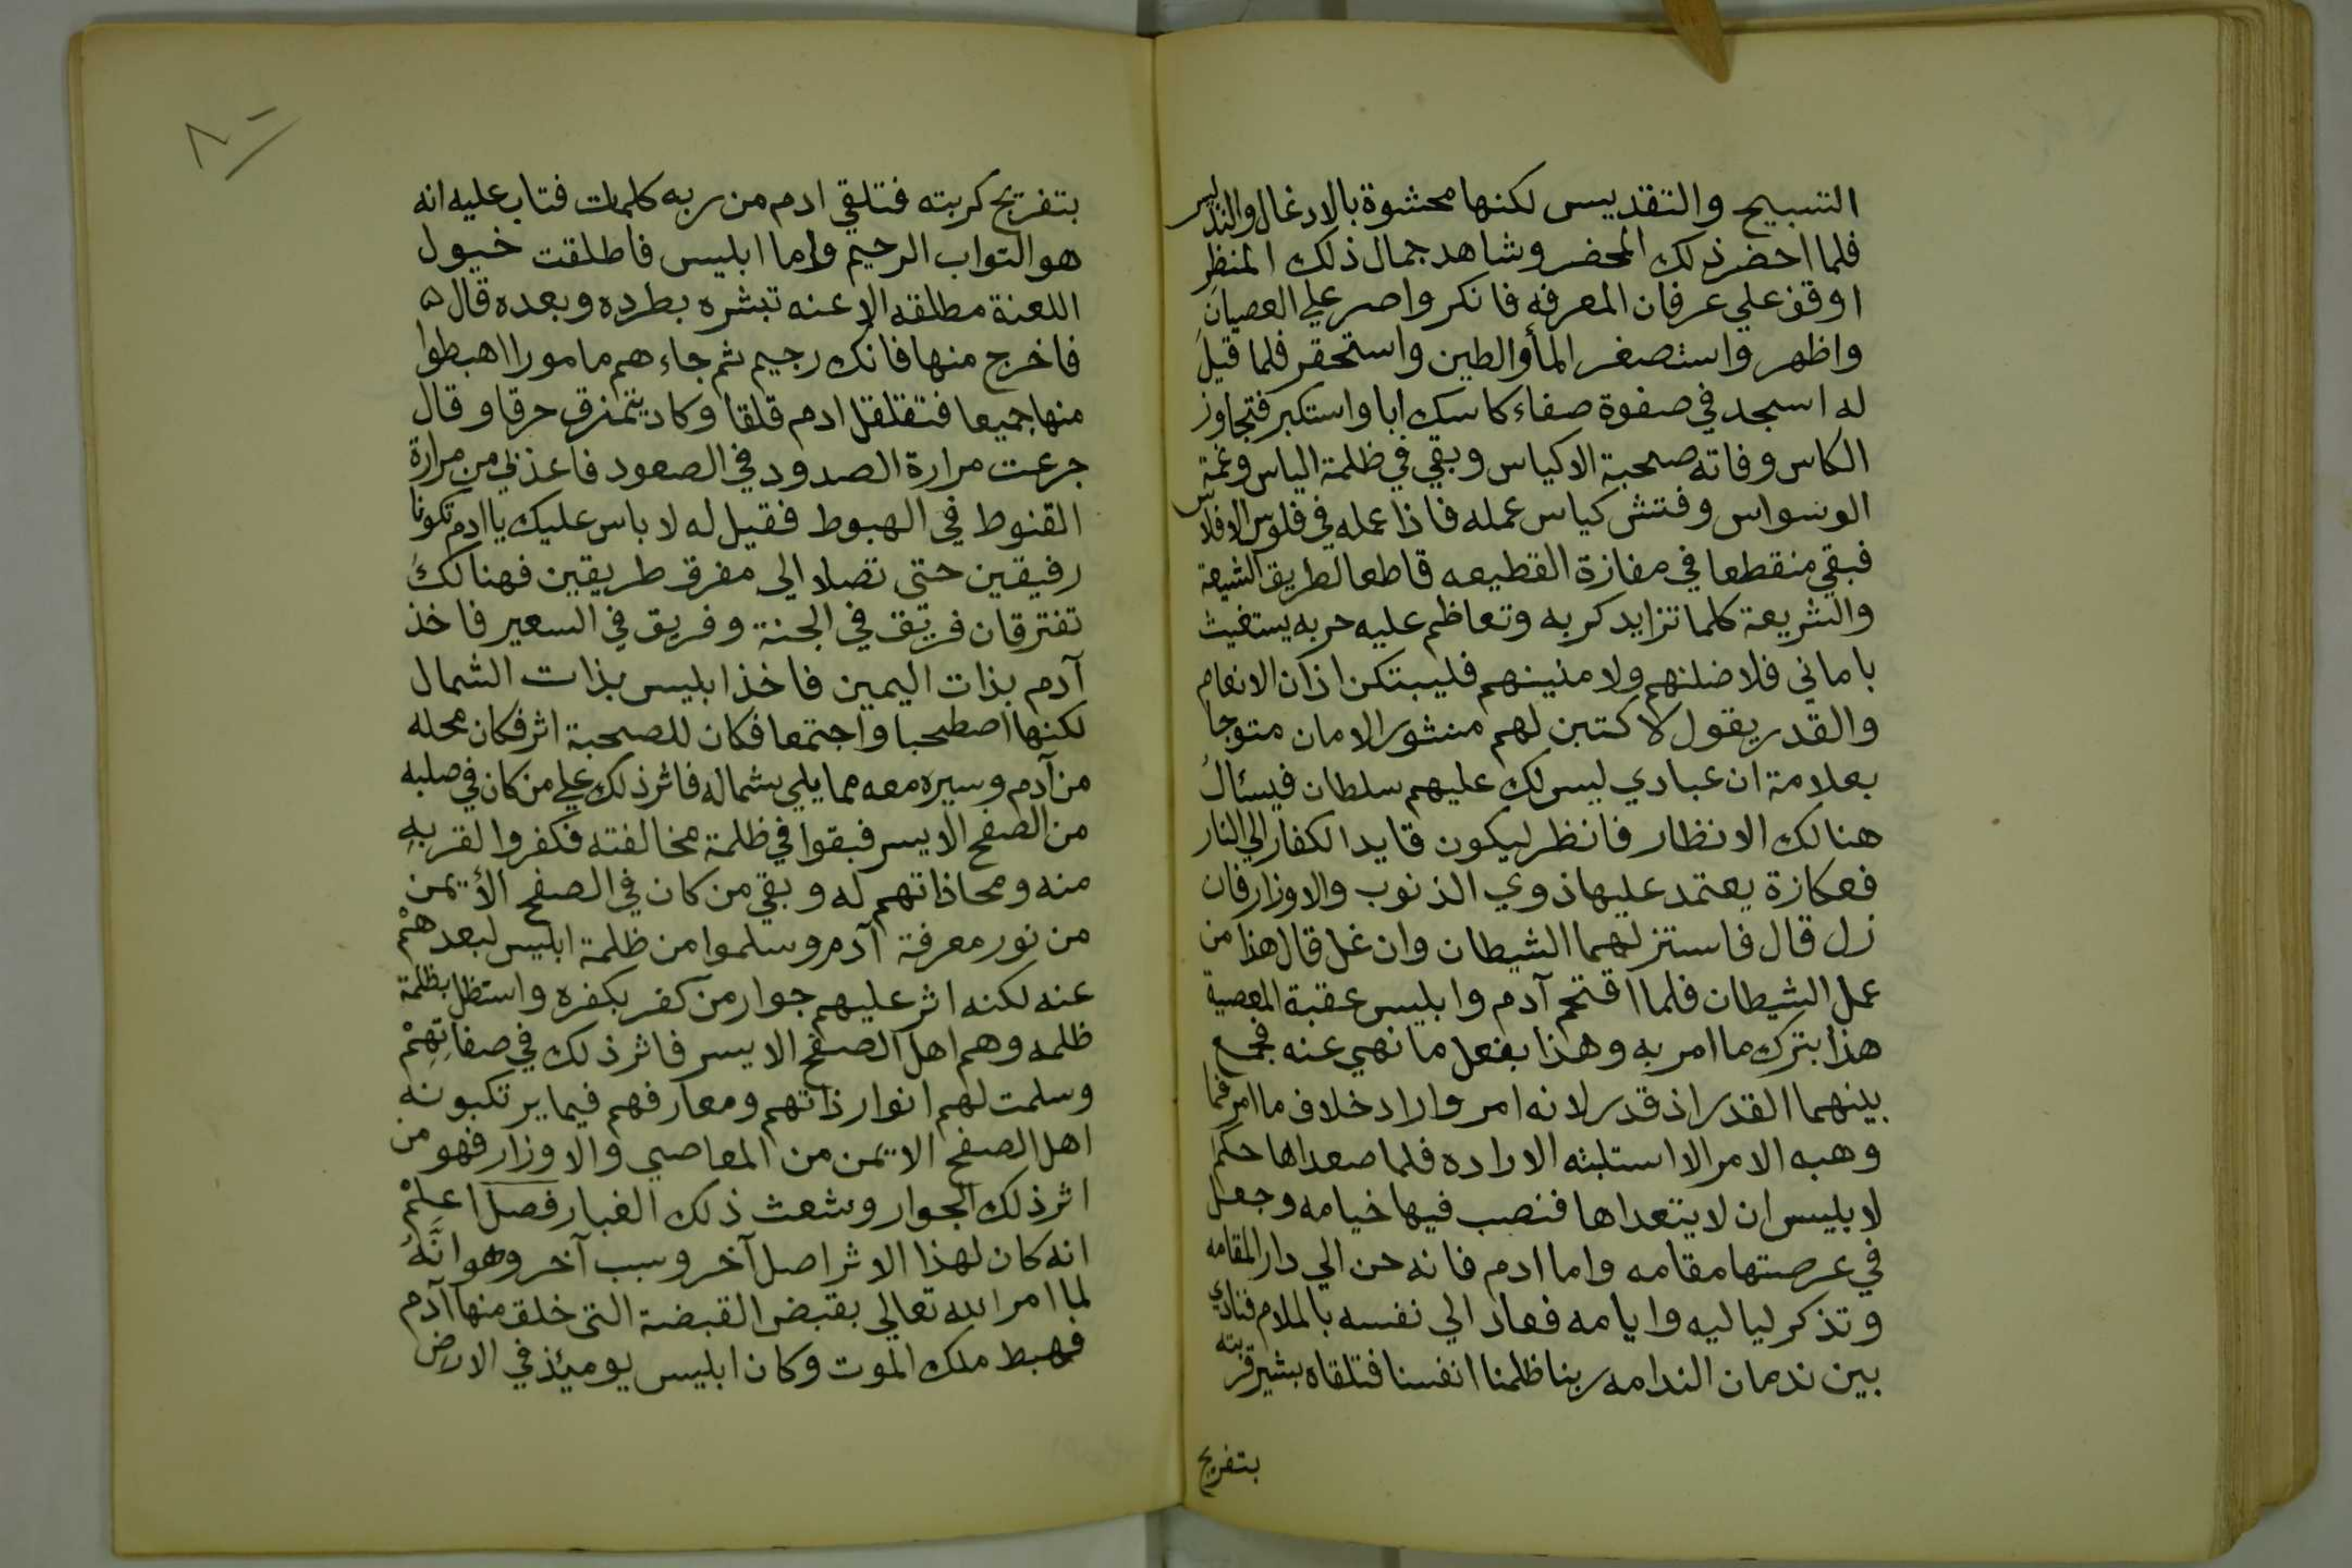 التسبيح والتقديس لكنها محشوة بالادغال والتدليس
فلما احضر ذلك المحضر وشاهد جمال ذلك المنظر
اوقف علي عرفان المعرفه فانكر واصر علي العصيان
واظهر واستصغر المأ والطين واستحقر فلما قيل
له اسجد في صفوة صفاء كاسك ابا واستكبر فتجاوز
الكاس وفاته صحبة الاكياس وبقي في ظلمة الياس وغمة
الوسواس وفتش كياس عمله فاذا عمله في فلوس الافلاس
فبقي منقطعا في مفازة القطيعه قاطعا لطريق الشيعة
والشريعة كلما تزايد كربه وتعاظم عليه حربه يستغيث
باماني فلاضلنهم ولامنينهم فليبتكن اذان الانعام
والقدر يقول لاكتبن لهم منشور الامان متوجا
بعلامة ان عبادي ليس لك عليهم سلطان فيسئال
هنالك الانظار فانظر ليكون قايد الكفار الي النار
فعكازة يعتمد عليها ذوي الذنوب والاوزار فان
زل قال فاستزلهما الشيطان وان غل قال هذا من
عمل الشيطان فلما اقتحم آدم وابليس عقبة المعصية
هذا بترك ما امر به وهذا بفعل ما نهي عنه فجمع
بينهما القدر اذ قدر لانه امر واراد خلاف ما امر فما
وهبه الامر الا استلبته الاراده فلما صعداها حكم
لابليس ان لا يتعداها فنصب فيها خيامه وجعل
في عرصتها مقامه واما ادم فانه حن الي دار المقامه
وتذكر لياليه وايامه فعاد الي نفسه بالملام فنادي
بين ندمان الندامه ربنا ظلمنا انفسنا فتلقاه بشير قربته
بتفريج
بتفريج كربته فتلقي ادم من ربه كلمات فتاب عليه انه
هو التواب الرحيم واما ابليس فاطلقت خيول
اللعنة مطلقه الاعنه تبشره بطرده وبعده قال
فاخرج منها فانك رجيم ثم جاءهم مامورا اهبطوا
منها جميعا فتقلقل ادم قلقا وكاد يتمزق حرقا وقال
جرعت مرارة الصدود في الصعود فاعذني من مرارة
القنوط في الهبوط فقيل له لا باس عليك يا ادم تكونا
رفيقين حتي تصلا الي مفرق طريقين فهنالك
تفترقان فريق في الجنة وفريق في السعير فاخذ
آدم بذات اليمين فاخذ ابليس بذات الشمال
لكنها اصطحبا واجتمعا فكان للصحبة اثر فكان محله
من آدم وسيره معه مما يلي شماله فاثر ذلك علي من كان في صلبه
من الصفح الايسر فبقوا في ظلمة مخالفته فكفروا لقربه
منه ومحاذاتهم له وبقي من كان في الصفح الأيمن
من نور معرفة آدم وسلموا من ظلمة ابليس لبعدهم
عنه لكنه اثر عليهم جوار من كفر بكفره واستظل بظلمة
ظلمه وهم اهل الصفح الايسر فاثر ذلك في صفاتهم
وسلمت لهم انوار ذاتهم ومعارفهم فيما يرتكبونه
اهل الصفح الايمن من المعاصي والاوزار فهو من
اثر ذلك الجوار وشعث ذلك الغبار فصل اعلم
انه كان لهذا الاثر اصل آخر وسبب آخر وهو انه
لما امر الله تعالي بقبض القبضة التي خلق منها آدم
فهبط ملك الموت وكان ابليس يوميئذ في الارض